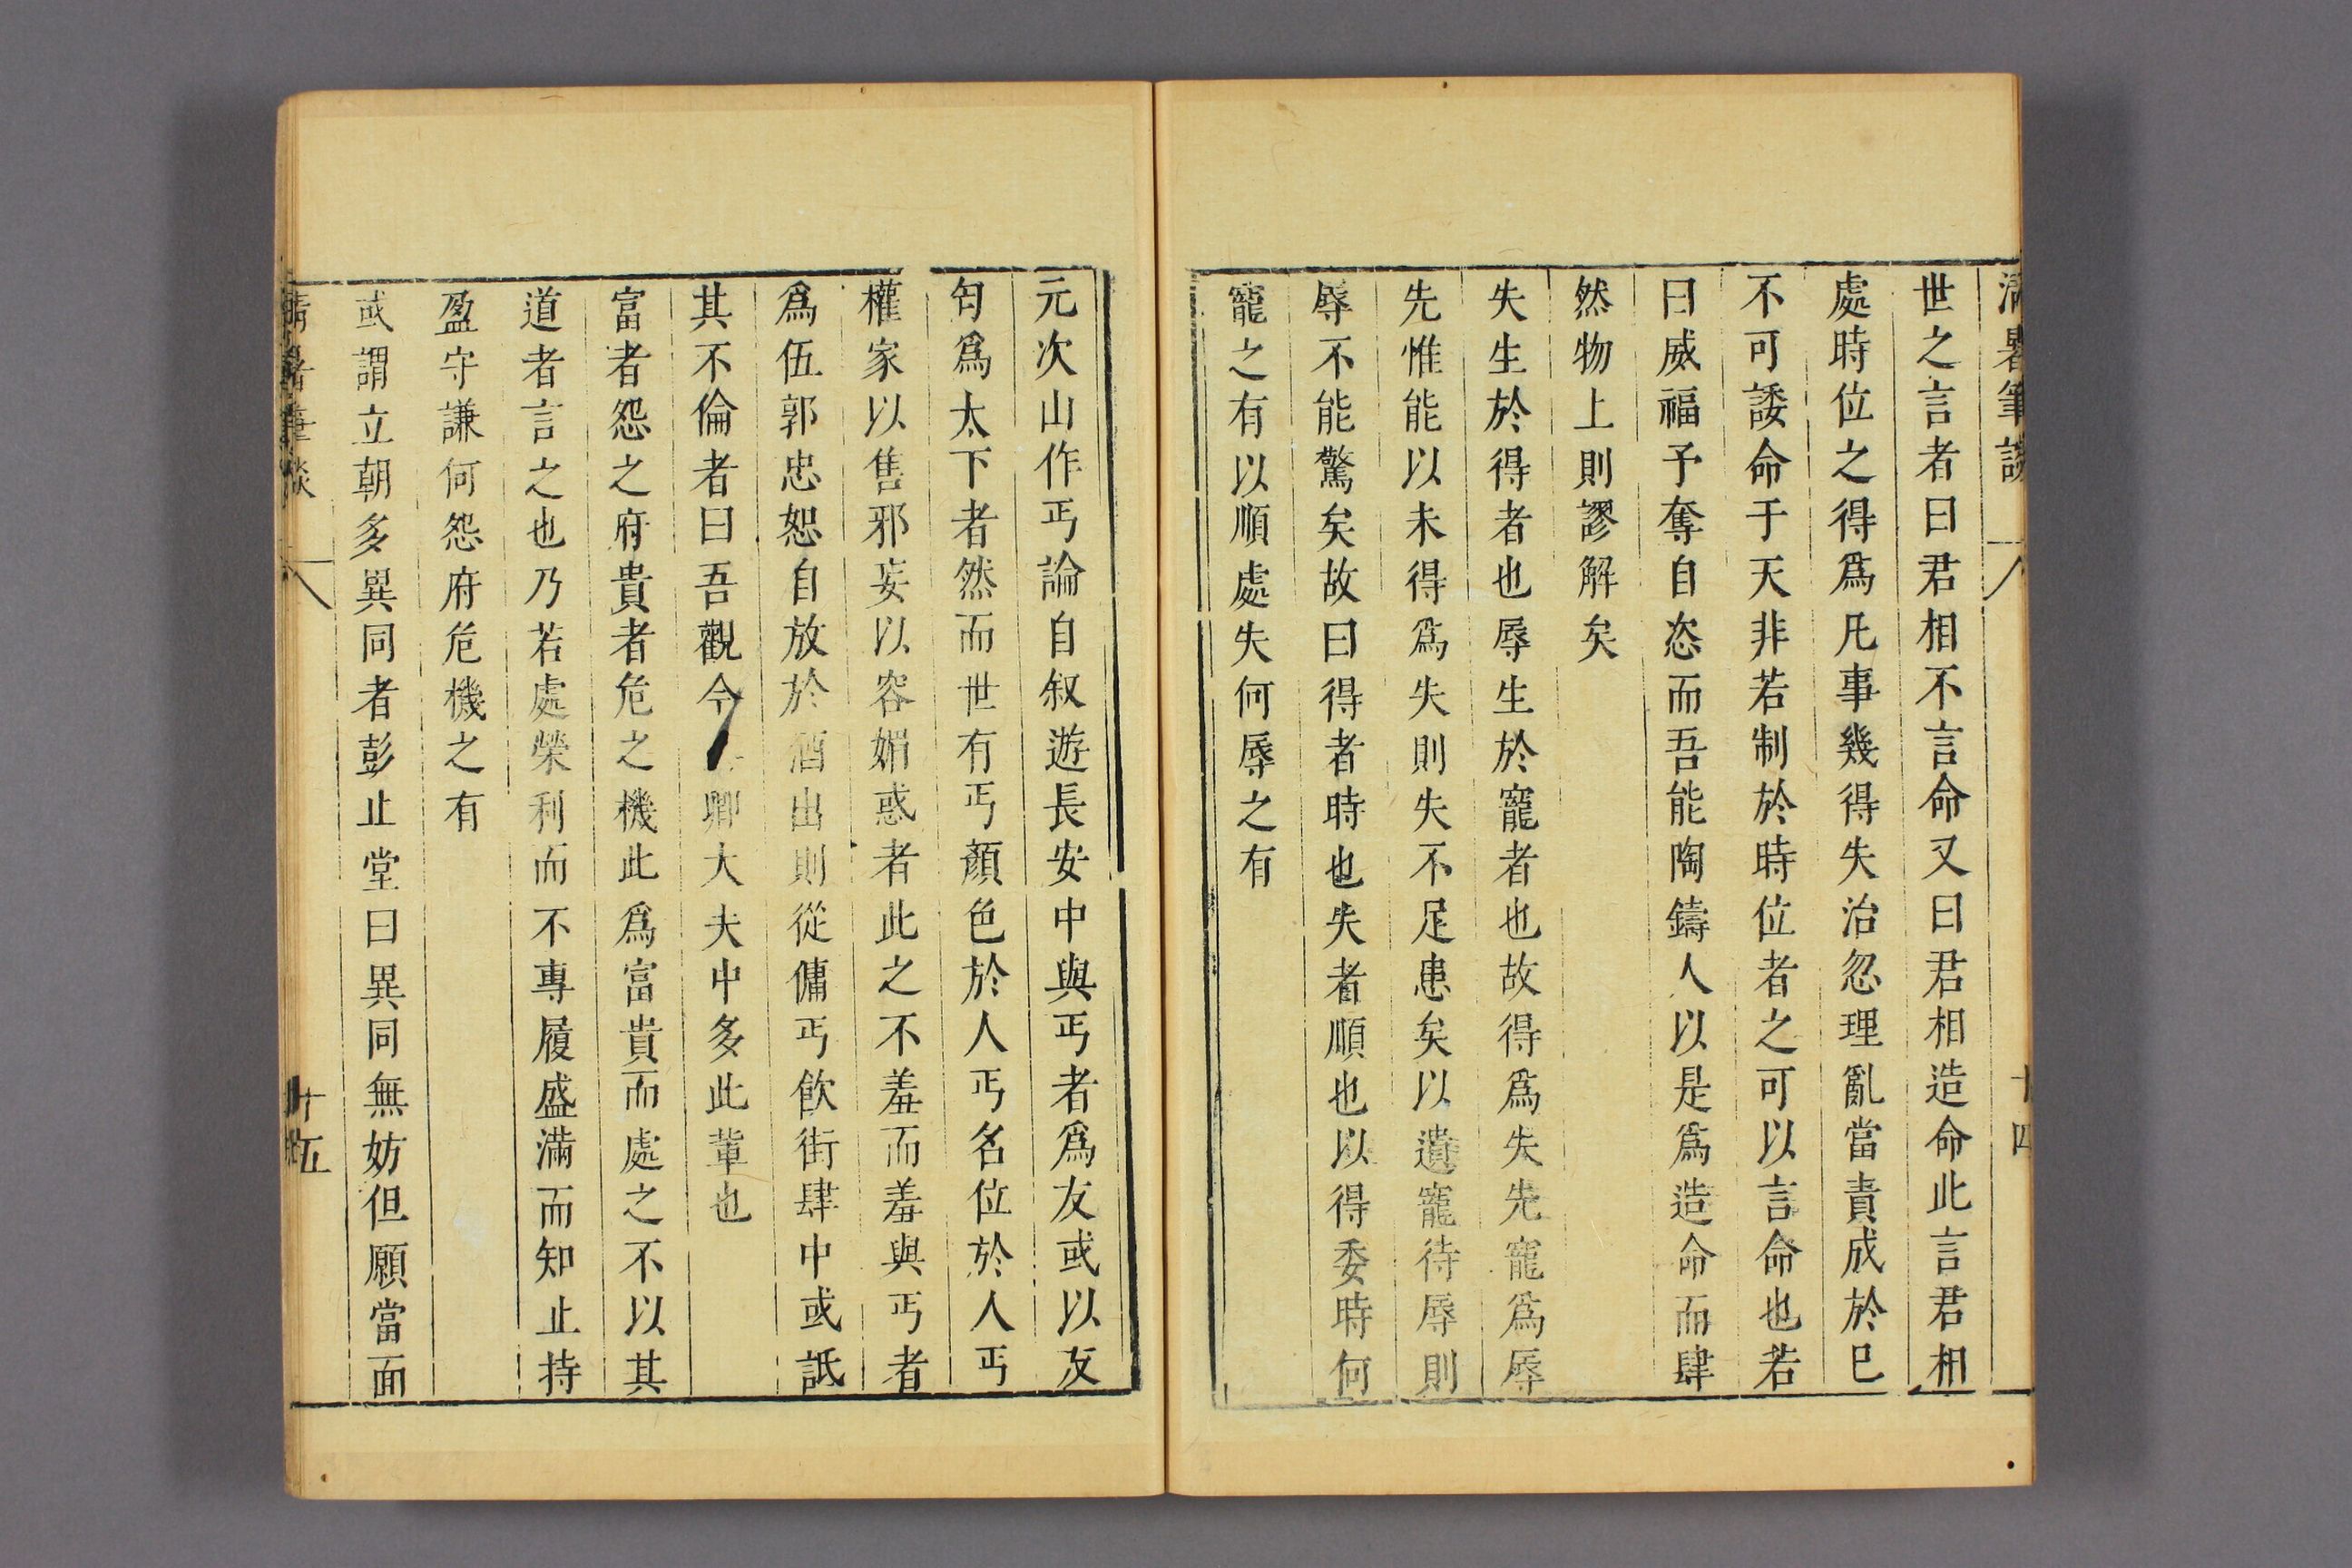 清暑筆談 十四
世之言者曰君相不言命又曰君相造命此言君相
處時位之得爲凡事幾得失治忽理亂當責成於己
不可諉命于天非若制於時位者之可以言命也若
曰威福予奪自恣而吾能陶鑄人以是爲造命而肆
然物上則謬解矣
失生於得者也辱生於寵者也故得爲失先寵爲辱
先惟能以未得爲失則失不足患矣以遺寵待辱則
辱不能驚矣故曰得者時也失者順也以得委時何
寵之有以順處失何辱之有
元次山作丐論自叙遊長安中與丐者爲友或以友
匄爲太下者然而世有丐顏色於人丐名位於人丐
權家以售邪妄以容媚惑者此之不羞而羞與丐者
爲伍郭忠恕自放於酒出則從傭丐飲街肆中或詆
其不倫者曰吾觀今卿大夫中多此輩也
富者怨之府貴者危之機此爲富貴而處之不以其
道者言之也乃若處榮利而不專履盛滿而知止持
盈守謙何怨府危機之有
或謂立朝多異同者彭止堂曰異同無妨但願當面
清暑筆談 十五